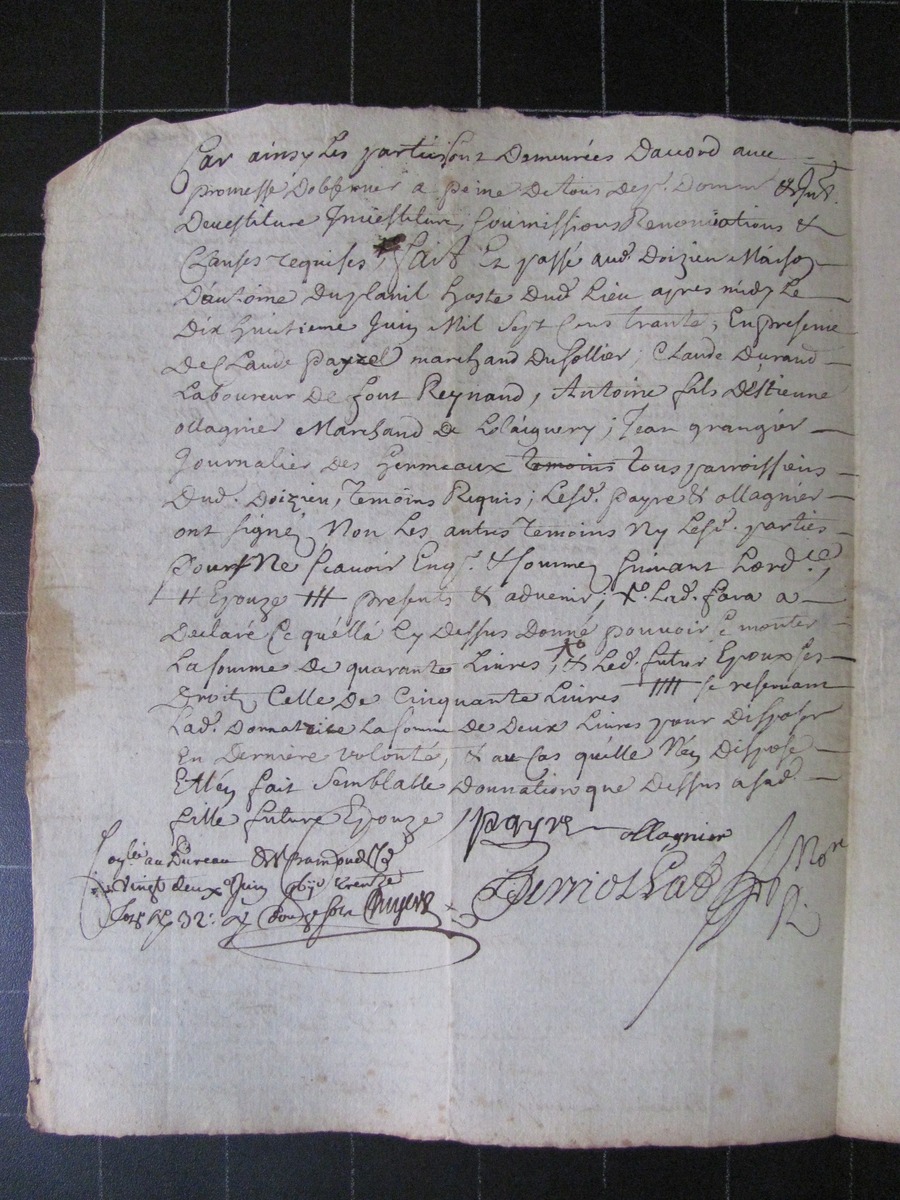 Car ainsy les parties sont Demeurées Daccord avec
promesse Dobserver a peine De tous Desp. Domm &
Devestiture Investiture, soumissions Renonciations &
Clauses requises, fait Et passé aud. Doizieu Maison
Dantoine Duplanil hoste Dud. Lieu apres midy Le
Dix huitieme Juin Mil Sept Cens trante, En presence
De Claude payre marchand Du sollier, Claude Durand
Laboureur De font Reynaud, Antoine fils Déstienne
ollagnier Marchand de, Jean grangier
Journalier des tous parroissiens
Dud. Doizieu, Temoins Requis; Lesd. payre & ollagnier
ont signé Non Les autres Temoins Ny Lesd. parties
pour Ne scavoir Enq. & sommez suivant Lord.ce,
# Epouze ## presents & advenir; Lad. fara a
Declaré Ce quélla Cy Dessus Donné pouvoir monter
La somme de quarante Livres, & Led. futur Epoux ses
Droit Celle de Cinquante Livres #### se reservant
Lad. Donnatrice La somme de Deux Livres pour Disposer
En Derniere volonté, & au Cas quelle Néy Dispose
Elléy fait Semblable Donnation que Dessus a sad.
fille future Epouze payre ollagnier
au Bureau
Vingt deux Juin trente
32: